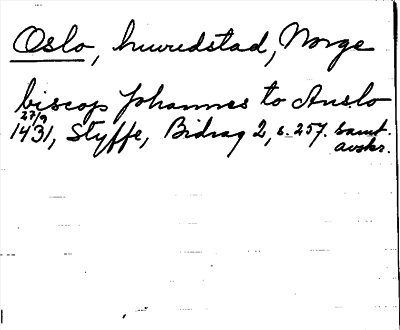 Oslo, huvudstad, Norge
biscop Johannes to Anslo
27/9
1431, Styffe, Bidrag 2, s. 257. samt.
avskr.